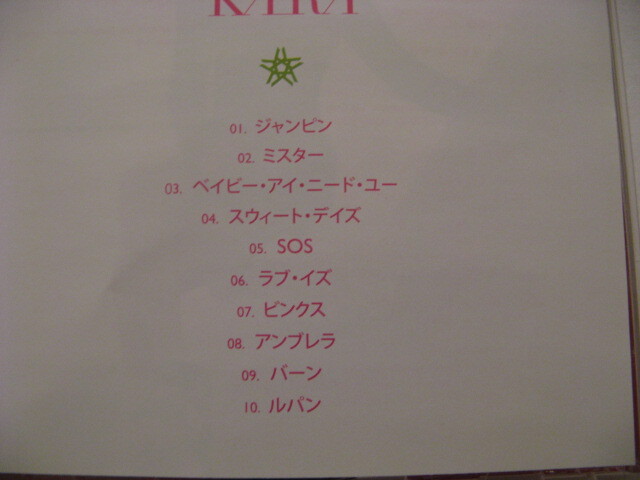 KARA
01. ジャンピン
02. ミスター
03. ベイビー・アイ・ニード・ユー
04. スウィート・デイズ
05. SOS
06. ラブ・イズ
07. ピンクス
08. アンブレラ
09. バーン
10. ルパン